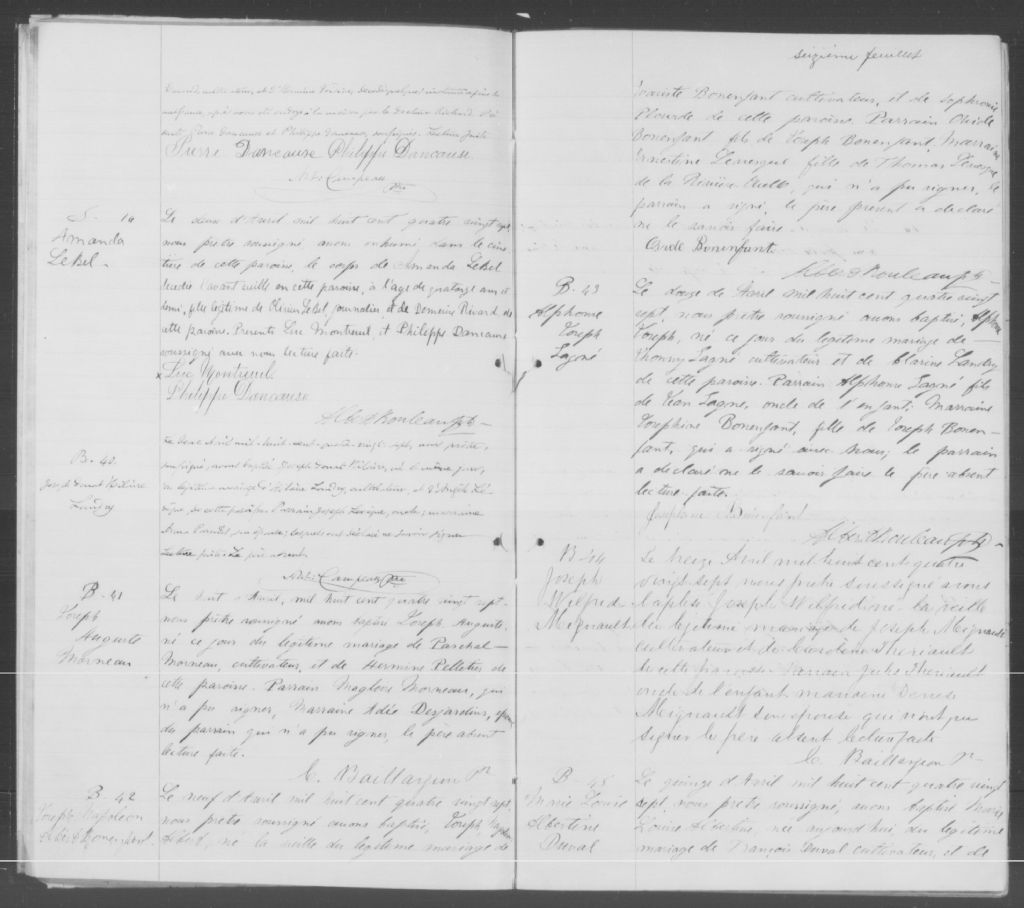 naissance
Pierre Dancause et Philippe Dancause
Pierre Dancause Philippe Dancause
Ptre
S - 14
Amanda
LeBel -
Le deux d'Avril mil huit cent quatre vingt sept,
nous prêtre soussigné avons inhumé dans le cime
tière de cette paroisse, le corps de Amanda LeBel
avant veille en cette paroisse, à l'age de quatorze ans et
demi, fille légitime de Olivier LeBel, journalier et de Demeire Rivard de
cette paroisse. Presents Luc Montreuil et Philippe Dancause
soussignés avec nous lecture faite.
Luc Montreuil
Philippe Dancause
Albert Rouleau ptre
B - 40
Joseph Donat Hilaire
Landry
Avril mil huit cent quatre vingt sept, nous prêtre
soussigné, avons baptisé Joseph Donat Hilaire, né le même jour,
du légitime mariage d' Landry, cultivateur, et d'
de cette paroisse Parrain Joseph oncle, marraine
son épouse, lesquels ont déclaré ne savoir signer
Lecture faite. Le père absent
Campeau Ptre
B - 41
Joseph
Auguste
Morneau
Le huit d'Avril, mil huit cent quatre vingt sept
nous prêtre soussigné avons baptisé Joseph Auguste,
né ce jour du légitime mariage de Paschal
Morneau, cultivateur, et de Hermine Pelletier de
cette paroisse. Parrain Magloire Morneau, qui
n'a pu signer, Marraine Adée Desjardins, épouse
du parrain qui n'a pu signer, le père absent
lecture faite.
C. Baillargeon Ptr
B - 42
Joseph Napoléon
Albert Bonenfant
Le neuf d'Avril mil huit cent quatre vingt sept,
nous prêtre soussigné avons baptisé, Joseph, Napoléon
Albert, né la veille du légitime mariage de
Seizième feuillet
Evariste Bonenfant cultivateur, et de Sophronie
Plourde de cette paroisse. Parrain Ovide
Bonenfant, fils de Joseph Bonenfant, Marraine
Ernestine Levesque fille de Thomas Levesque
de la Rivière Ouelle, qui n'a pu signer, le
parrain a signé, le père présent a déclaré
ne le savoir faire.
Ovide Bonenfant
Albert Rouleau ptre
B - 43
Alphonse
Joseph
Lagné
Le douze de Avril mil huit cent quatre vingt
sept, nous prêtre soussigné avons baptisé, Alphonse
Joseph, né ce jour du légitime mariage de
Thommy Lagné cultivateur et de Clarisse Landry
de cette paroisse. Parrain Alphonse Lagné fils
de Jean Lagné, oncle de l'enfant; Marraine
Josephine Bonenfant, fille de Joseph Bonen-
fant, qui a signé avec nous; le parrain
a déclaré ne le savoir faire le père absent
lecture faite.
Josephine Bonenfant
Albert Rouleau ptre
B - 44
Joseph
Wilfred
Mignault
Le treize Avril mil huit cent quatre
vingt sept nous prêtre soussigné avons
baptisé Joseph Wilfred né la veille
du légitime mariage de Joseph Mignault
cultivateur et de Theriault
de cette paroisse Parrain Jules Theriault
oncle de l'enfant marraine
Mignault son épouse qui n'ont pu
signer le père absent lecture faite
C. Baillargeon Ptr
B - 45
Marie Louise
Albertine
Duval
Le quinze d'Avril mil huit cent quatre vingt
sept, nous prêtre soussigné, avons baptisé Marie
Louise Albertine, née aujourd'hui, du légitime
mariage de François Duval cultivateur, et de